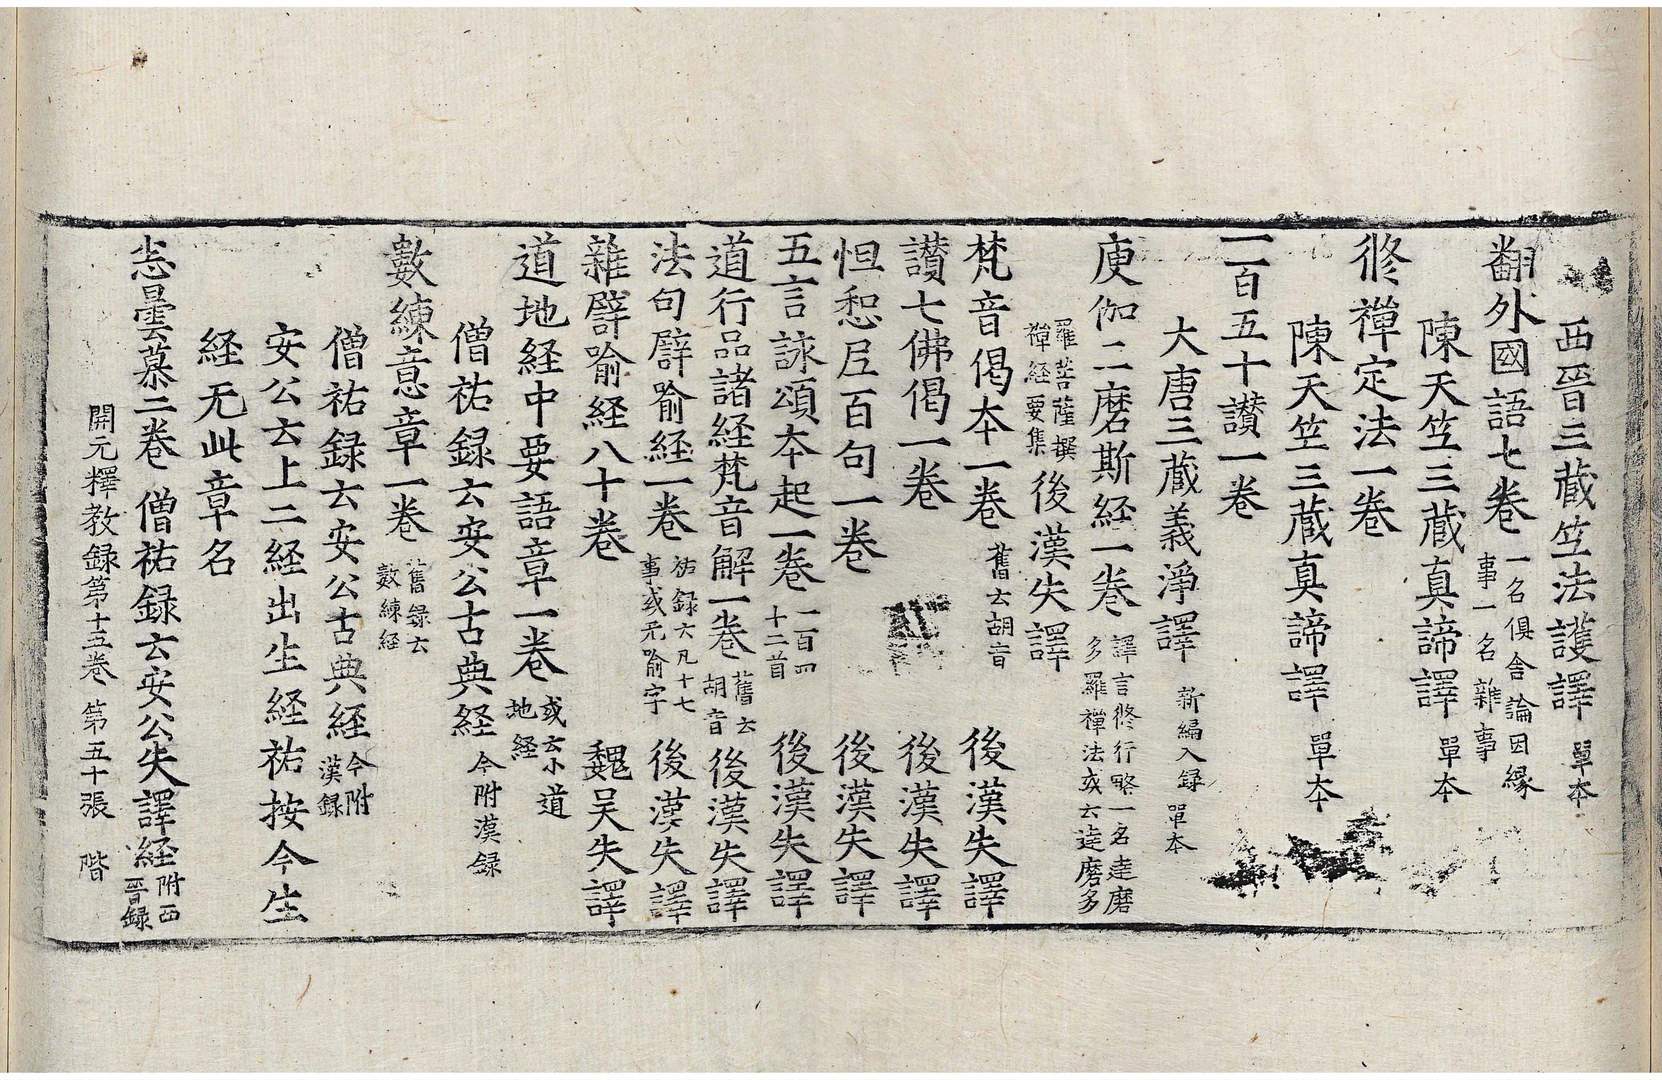 西晉三藏竺法護譯 單本
翻外國語七巻 一名俱舍論因縁事一名雜事
陳天竺三藏真諦譯 單本
修禪定法一巻
陳天竺三藏真諦譯 單本
一百五十讃一巻
大唐三藏義淨譯 新編入録 單本
庾伽三磨斯経一巻 譯言修行略一名達磨多羅禪法或云達磨多
羅菩薩撰禪経要集 後漢失譯
梵音偈夲一巻 舊云胡音 後漢失譯
讃七佛偈一巻 後漢失譯
怛惒尼百句一巻 後漢失譯
五言詠頌夲起一巻 一百四十二首 後漢失譯
道行品諸経梵音解一巻 舊云胡音 後漢失譯
法句譬喻経一巻 祐録云凡十七事或无喻字 後漢失譯
雜譬喻経八十巻 魏吴失譯
道地経中要語章一巻 或云小道地経
僧祐録云安公古典経 今附漢録
數練意章一巻 舊録云數練経
僧祐録云安公古典経 今附漢録
安公云上二経出生経祐按今生
経无此章名
恙曇慕二巻 僧祐録云安公失譯経 附西晉録
開元釋教録第十五巻 第五十張 階